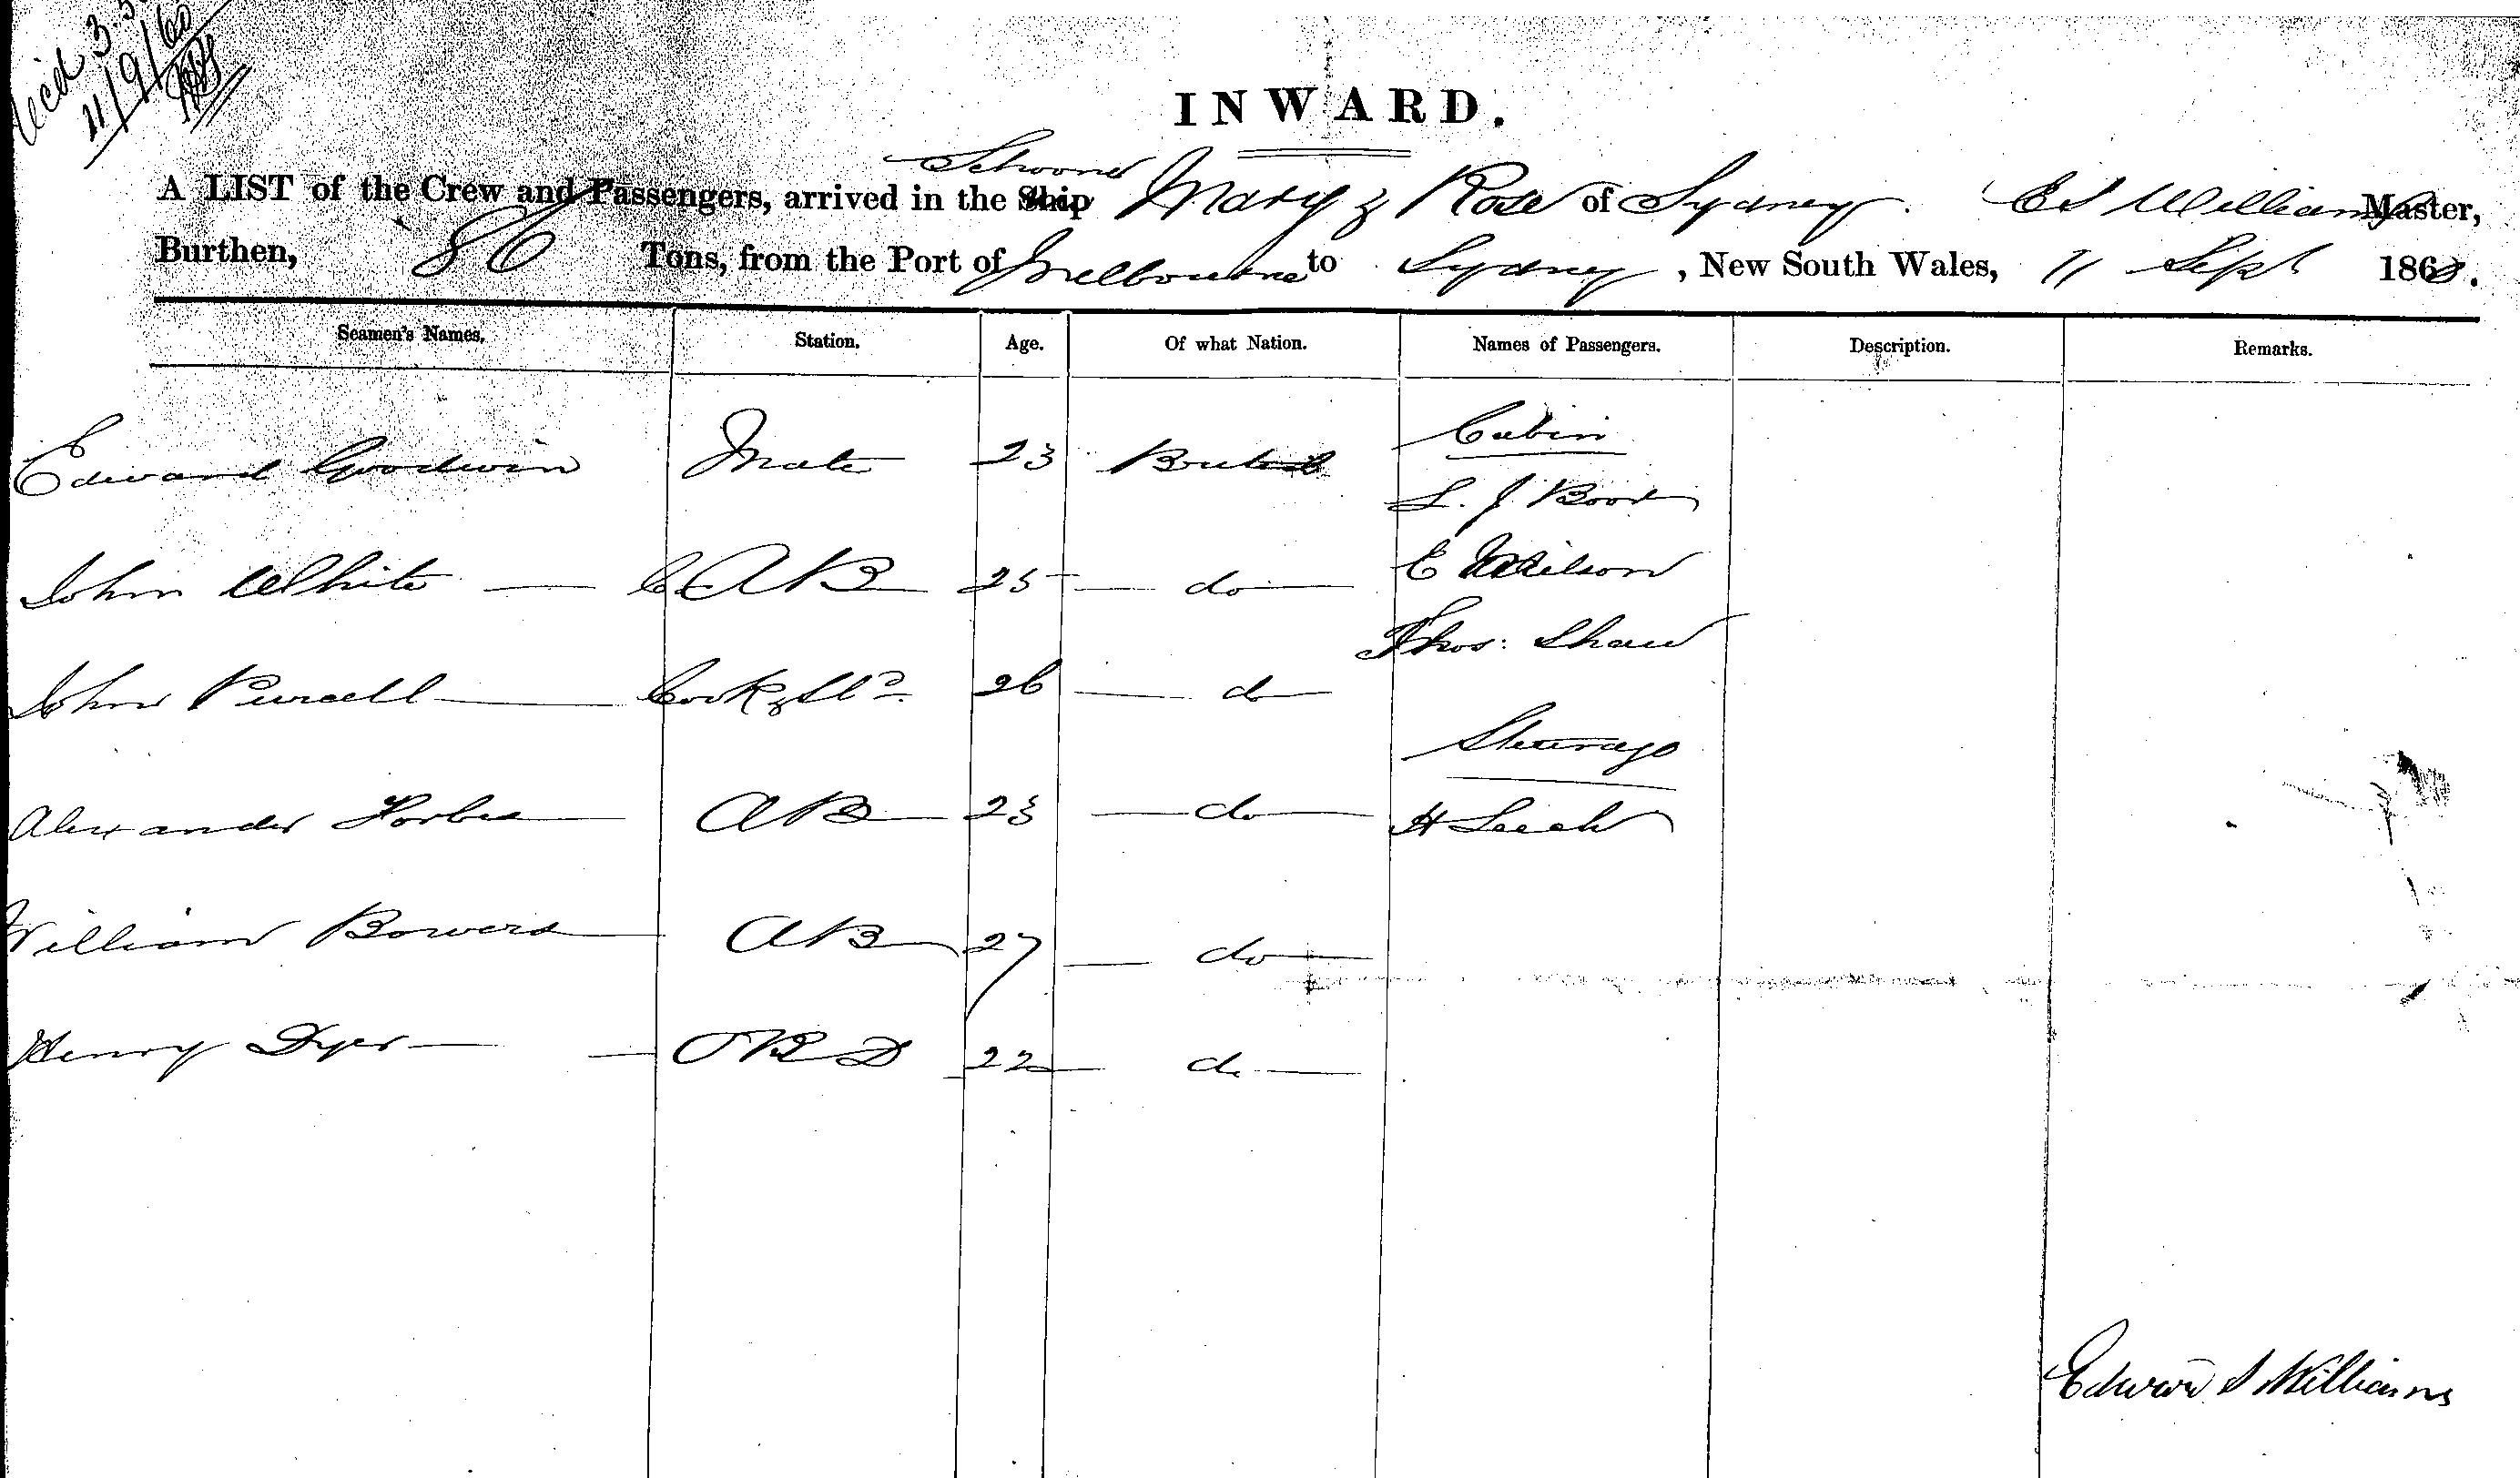 Recd 3.
11/9/60
INWARD.
Schooner
A LIST of the Crew and Passengers, arrived in the Ship Mary & Rose of Sydney. E S Williams Master,
Burthen, 86 Tons, from the Port of Melbourne to Sydney, New South Wales, 11 Sept 1860.
Seamen's Names. Station. Age. Of what Nation. Names of Passengers. Description. Remarks.
Cabin
Edward Goodwin Mate 23 British
L. J. Boor
John White AB 25 do E Wilson
Thos: Shaw
John Purcell Cook & St 26 do
Steerage
Alexander Forbes AB 23 do H Leech
William Bowers AB 27 do
Henry Dyer ORD 22 do
Edward S Williams